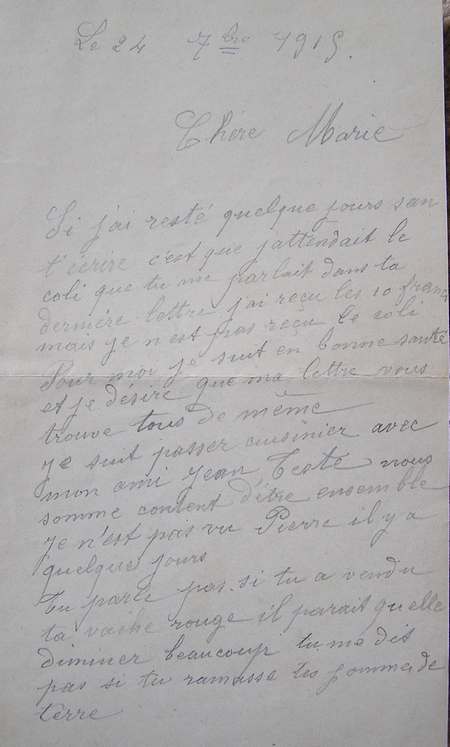 Le 24 7bre 1915.
Chère Marie
Si j'ai resté quelque jours san
t'écrire c'est que j'attendait le
coli que tu me parlait dans ta
dernière lettre j'ai reçu les 10 franc
mais je n'est pas reçu le coli
Pour moi je suit en bonne santé
et je désire que ma lettre vous
trouve tous de même
je suit passer cuisinier avec
mon ami Jean Testé nous
somme content d'être ensemble
Je n'est pas vu Pierre il y a
quelque jours
Tu parle pas si tu a vendu
ta vache rouge il parait quelle
diminer beaucoup tu me dis
pas si tu ramasse tes pomme de
terre